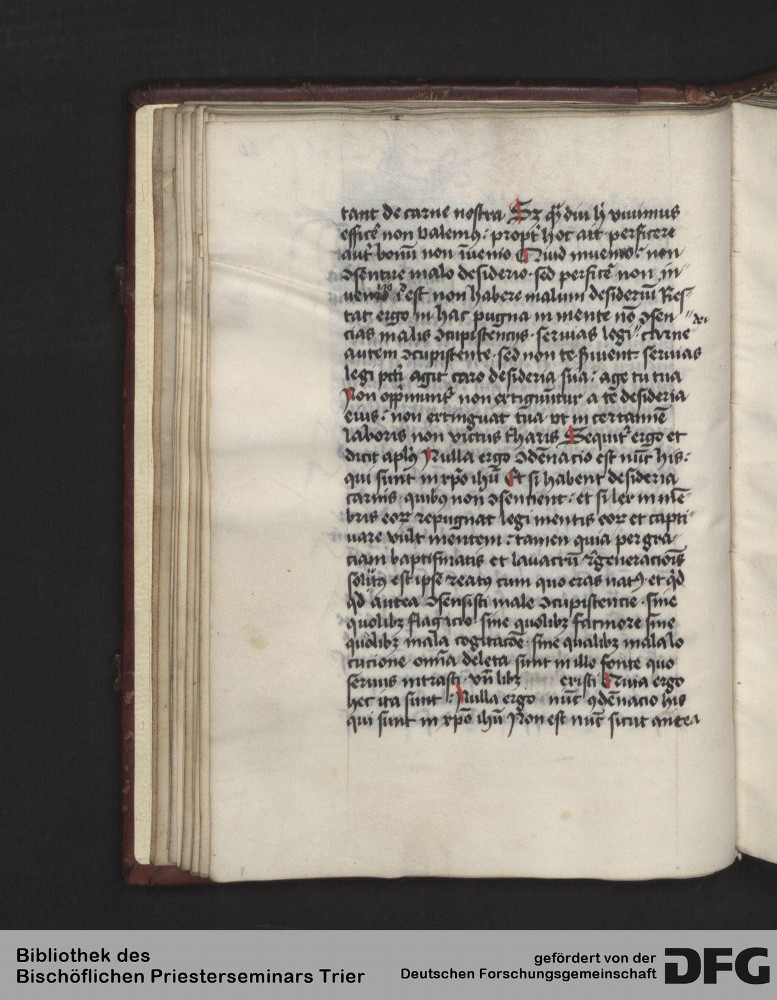 tant de carne nostra Sꝫ qͣdiu hͥ viuimus
efficͤ non valemꝰ : propt̉ hoc ait perficere
autͤ bonū non īuenio Quid inuenio : non
ↄsentire malo desiderio · sed perficͤ non in
est non habere malum desideriū Res
tat ergo in hac pugna in mente nō ↄsen
cias malis ↄcupiscencijs · seruias legi dei carne
autem ↄcupiscente · sed non te seruas
legi pcti agit caro desideria sua : age tu tua
Non non a te desideria
eius : non extinguat tua vt in certamīe
laboris non victus Sequit̉ ergo et
dicit aplꝰ Nulla ergo ↄdēnacio est nūc his :
qui sunt in xpō ihū Et si habent desideria
carnis · quibꝰ non ↄsentient : et si lex in mē
bris eoꝝ repugnat legi mentis eoꝝ et capti
uare vult mentem : tamen quia per gra
ciam baptismatis et lauacrū regeneracionis
solutꝰ est ipse reatꝰ cum quo eras natꝰ · et qͥd
qͥd antea ↄsensisti male ↄcupiscencie · siue
quolibꝫ flagicio siue quolibꝫ facinore siue
qualibꝫ mala cogitacōe · siue qualibꝫ mala lo
cucione omīa deleta sunt in illo fonte quo
seruus intrasti · vn̄ libꝫ existi Quia ergo
hec ita sunt : Nulla ergo nūc ↄdēnacio his
qui sunt in xpō ihū Non est nūc sicut antea
Bibliothek des
Bischöflichen Priesterseminars Trier
gefördert von der
Deutschen Forschungsgemeinschaft
DFG